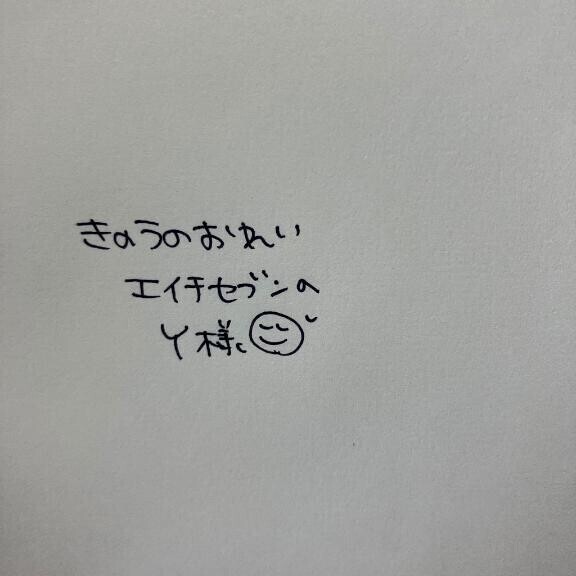 きのうのおれい
エイチセブンの
Y様